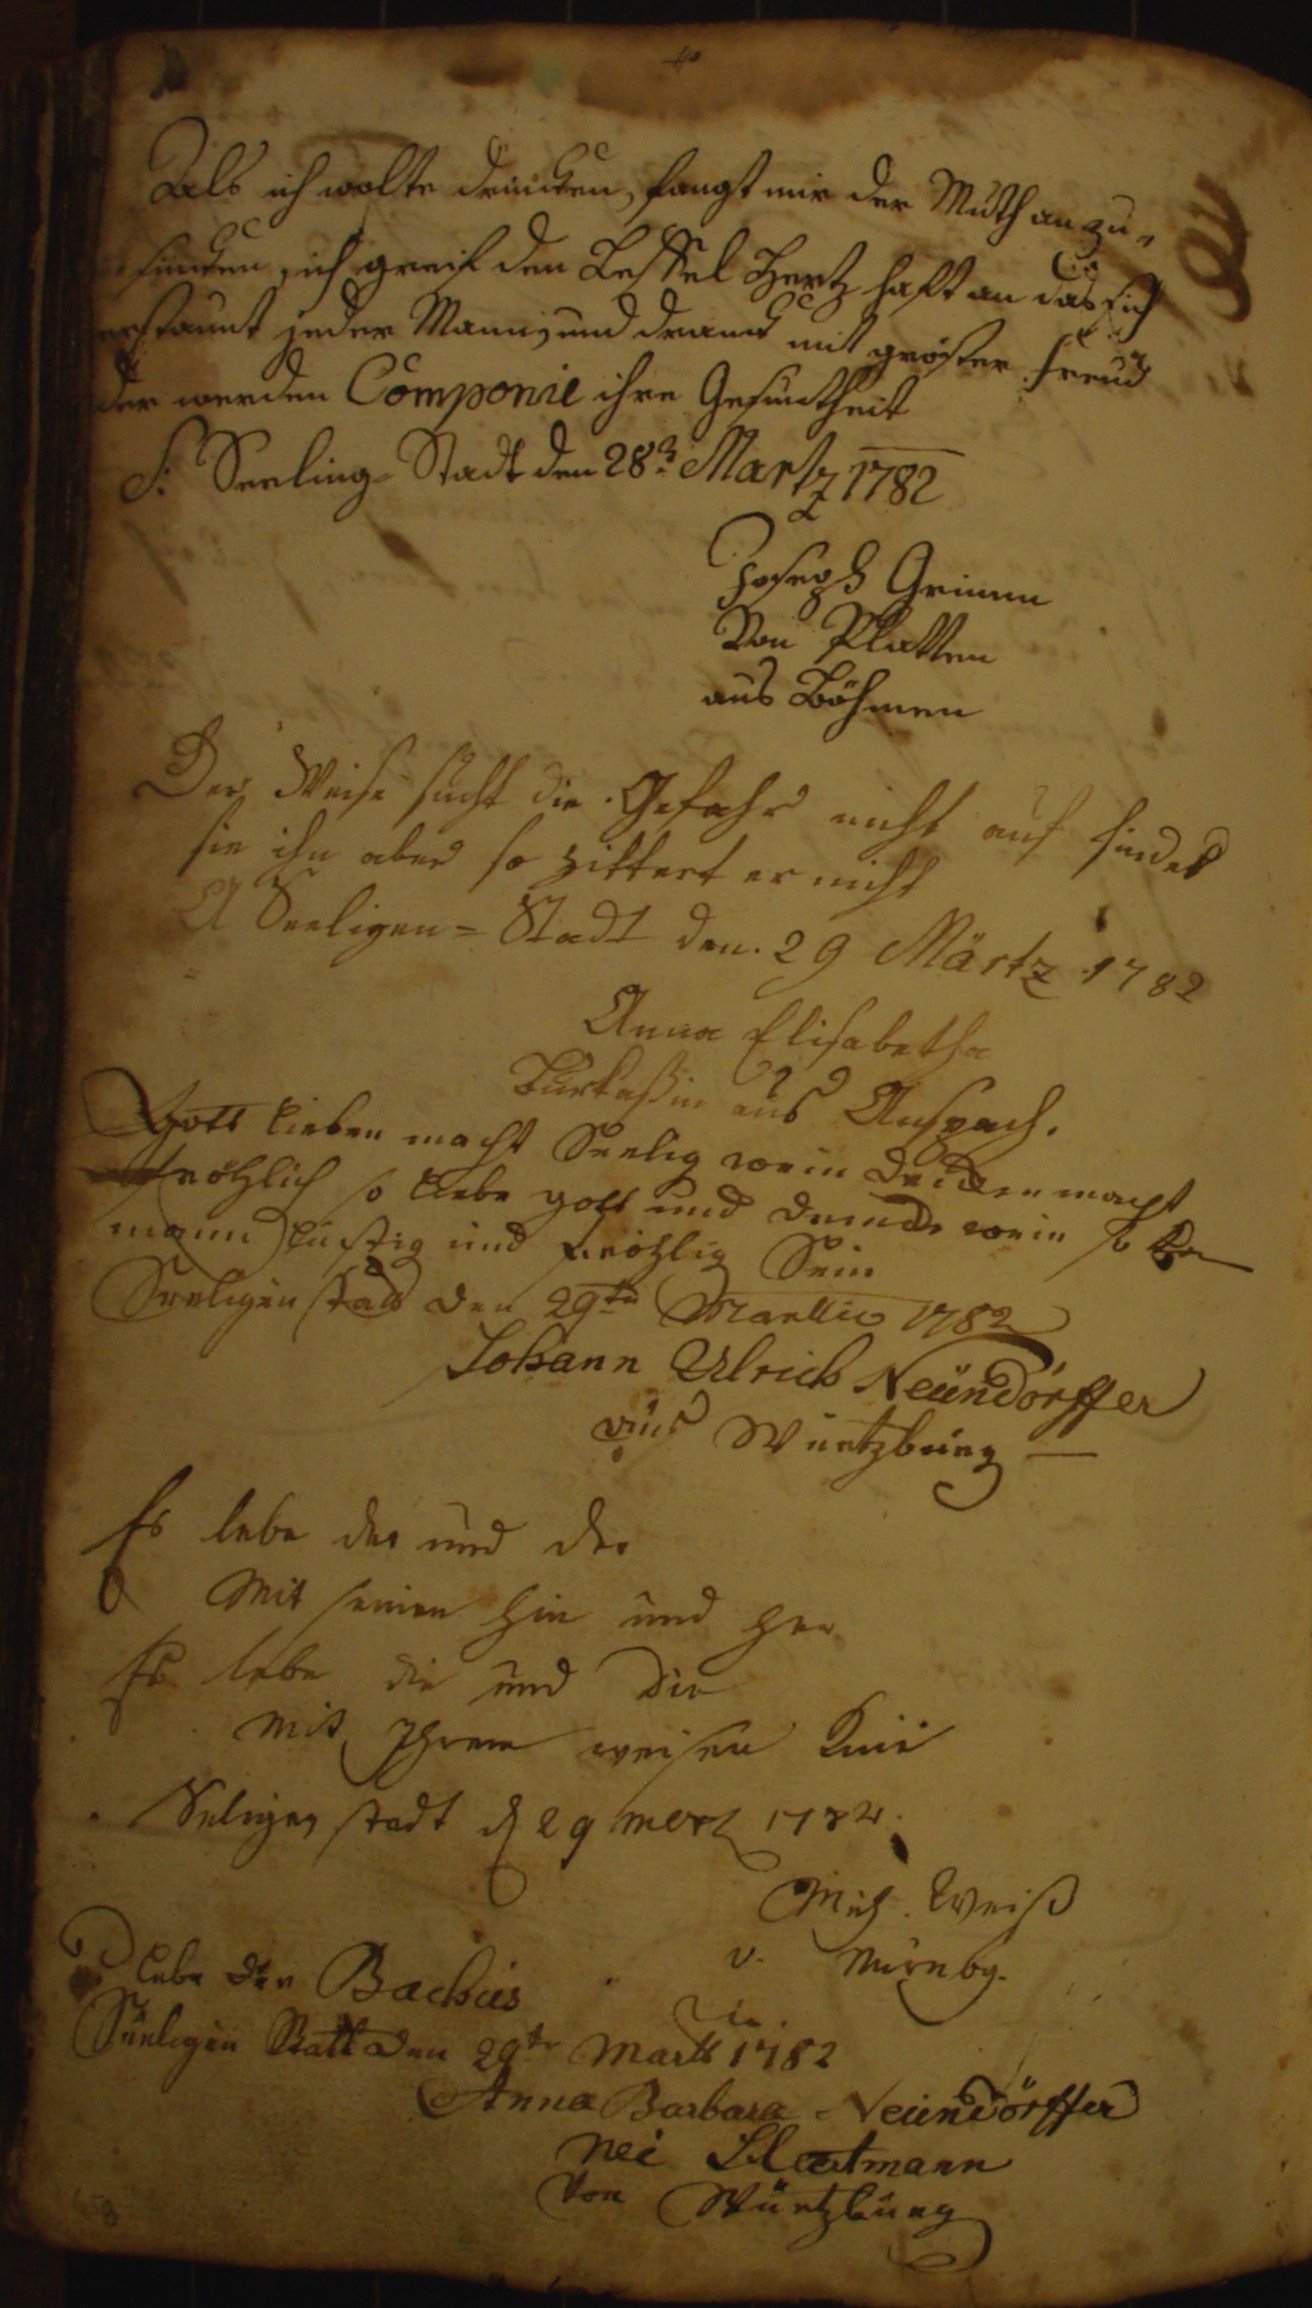 Als ich wolte drincken, fangt mir der Muth an zu,
sincken, ich greif den Leffel Hertz haft an das sich
erstaunt jeder Mann, und dranck mit gröster Freud
der werden Componie ihre Gesundheit
S: Seeling-Stadt den 28: Martz 1782
Joseph Grimm
Von Platten
aus Böhmen
Der Weise sucht die Gefahr nicht auf findet
sie ihn aber so zittert er nicht
Seeligen=Stadt den. 29 Märtz 1782
Anna Elisabetha
aus Anspach.
Gott lieben macht Seelig wein drincken macht
fröhlich so liebe gott und drincke wein so
mann lustig und fröhlig Sein
Seeligenstad den 29ten 1782
Johann Ulrich Neündörffer
aus Würtzburg
Es lebe der und der
Mit seinen hin und her
Es lebe die und die
mit Ihrem weisen Knie
Seligenstadt d 29 mertz 1782.
Mich. Weiß
v. Nürnbg.
lebe der Bachus
Seeligen Statt den 29te Martz 1782
Anna Barbara Neündörffer
Von Würtzburg